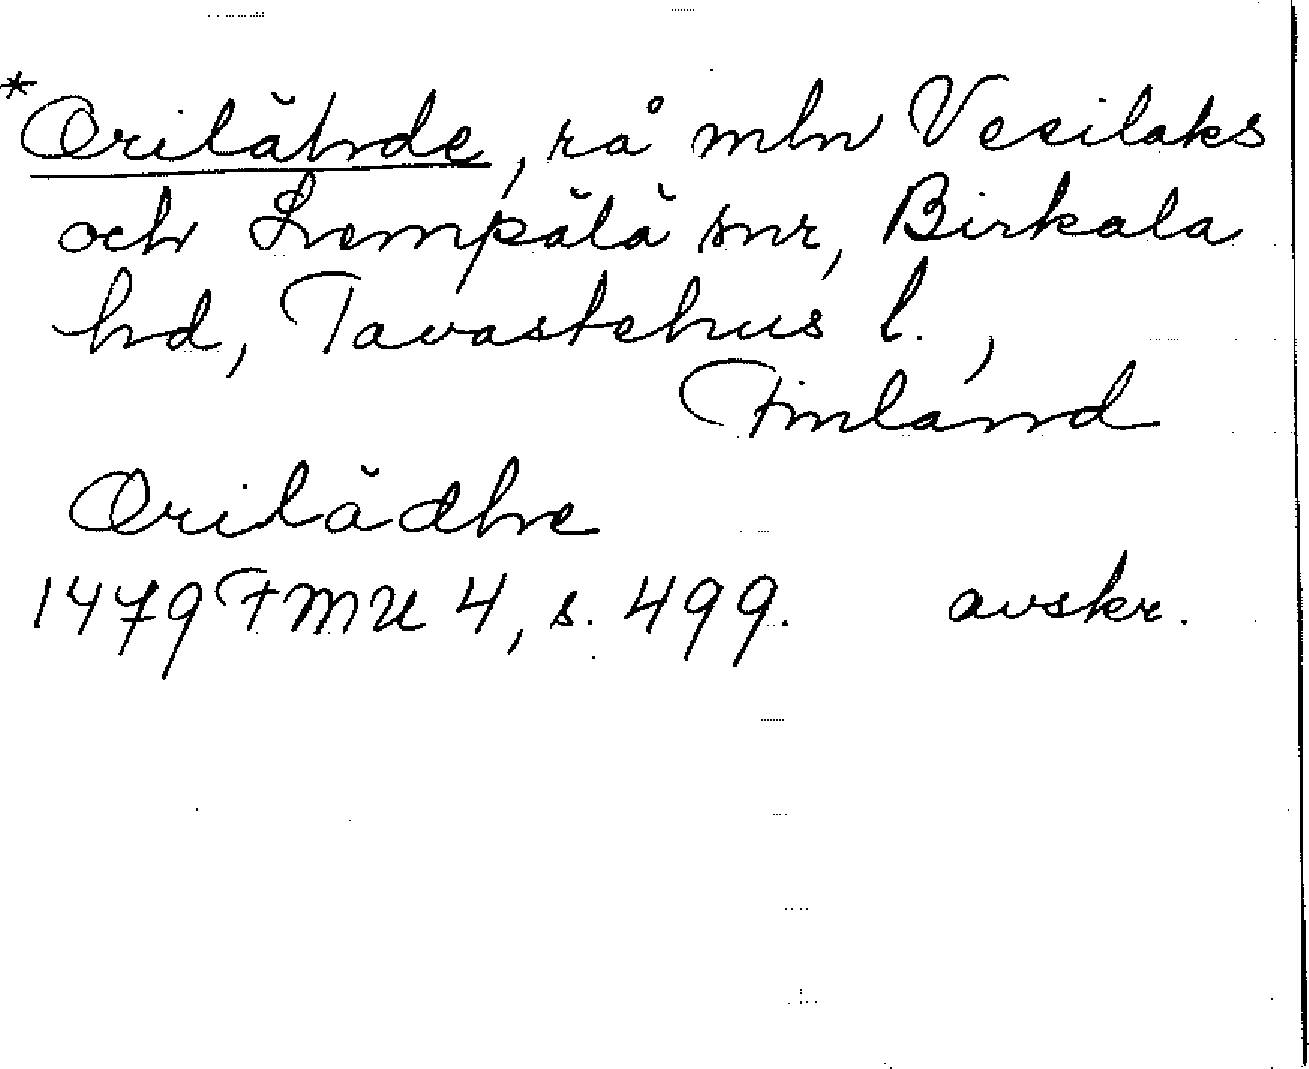 *Orilähde, rå mln Vesilaks
och Lempälä snr, Birkala
hd, Tavastehus l.,
Finland
Orilädhe
1479 FMU 4, s. 499. avskr.